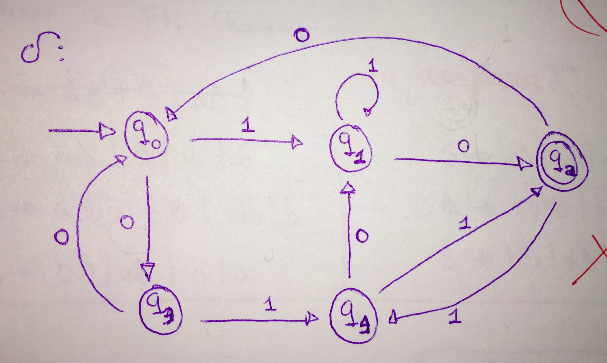 δ:
0
1
q0
1
q1
0
q2
0
0
0
1
q3
1
q4
1